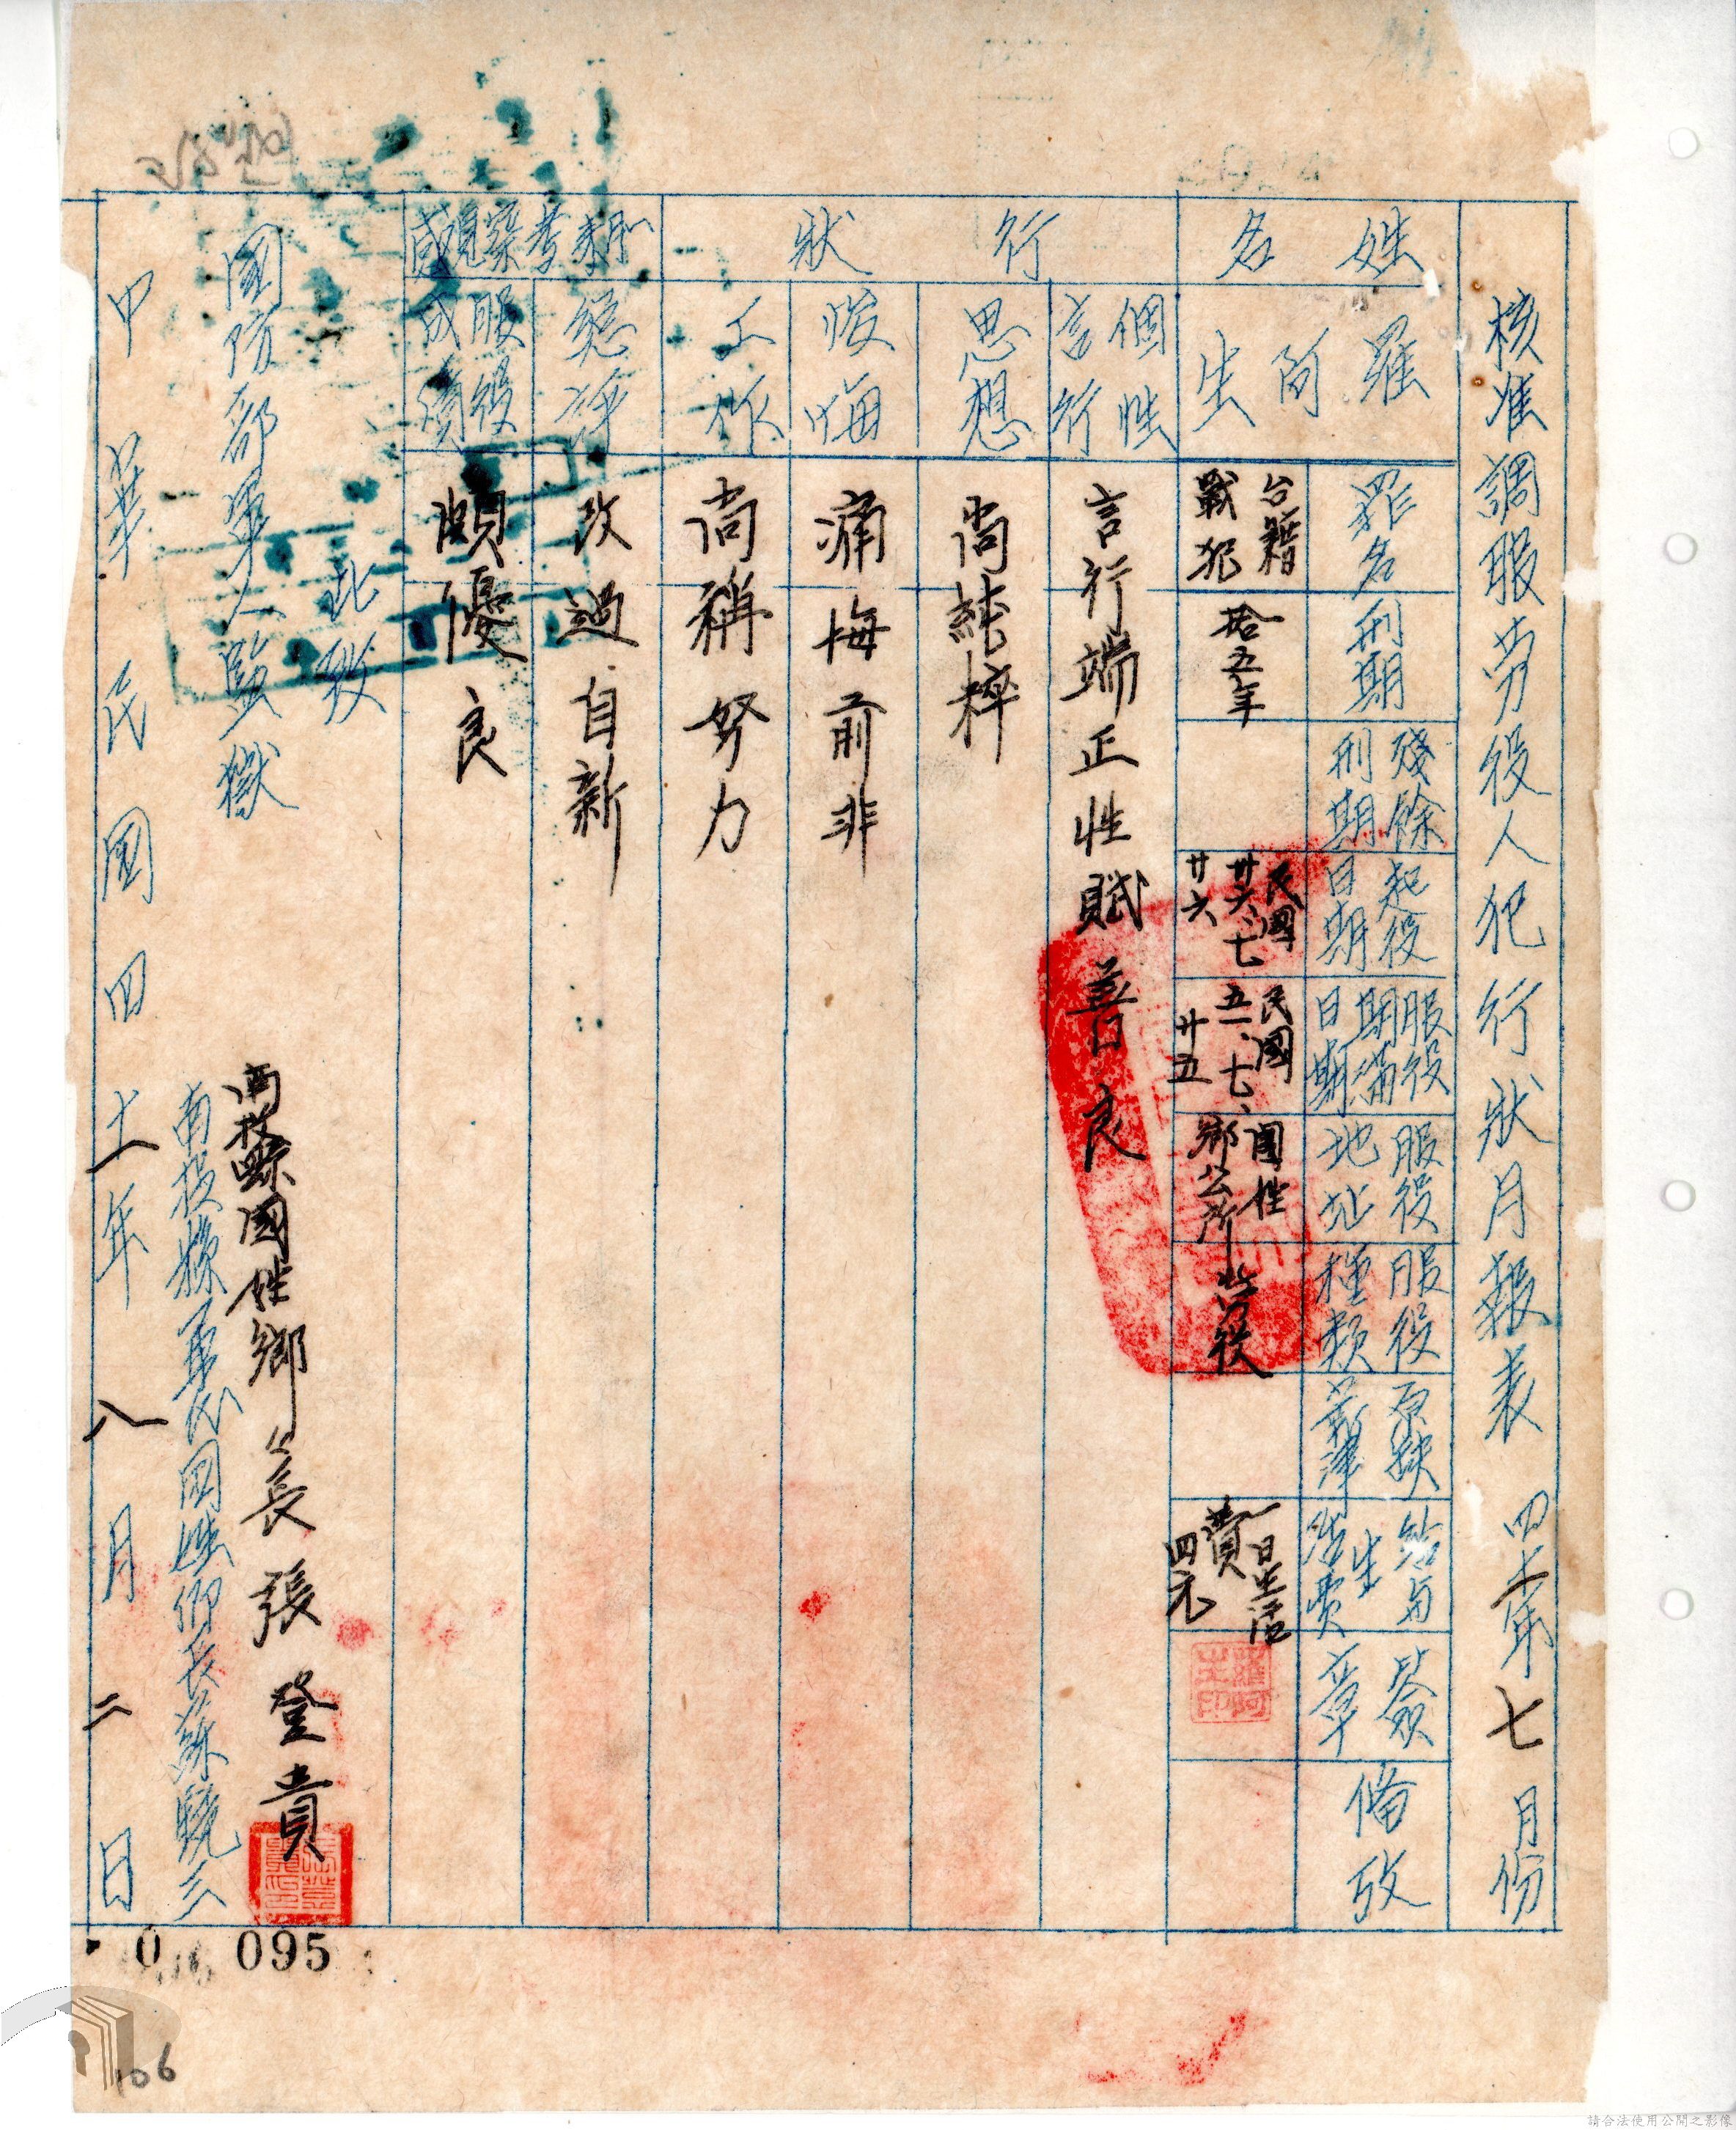 核准調服劳役人犯行狀月報表 四十一年七月份
姓名
羅阿生
罪名
台籍
戰犯
刑期
拾五年
殘餘
刑期
起役
日期
民國
卅六、七
廿六
服役
期滿
日期
民國
五一、七、
廿五
服役
地址
國姓
鄉公所
服役
種類
劳役
原缺
薪津
給与
生活費
一日生活
費
四元
簽章
羅阿
生印
備攷
行狀
個性
言行
言行端正性賦善良
思想
尚純粹
悛悔
痛悔前非
工作
尚稱努力
總評
改過自新
服役
成績
頗優良
此致
國防部軍人監獄
南投縣國姓鄉長張登貴
中華民國四十一年八月二日
0 095
106
請合法使用公開之影像